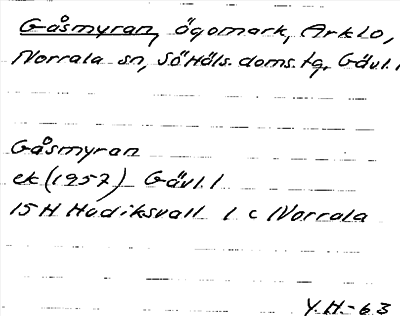 Gåsmyran, ägomark, Arklo,
Norrala sn, SöHäls. doms. tg. Gävl. l
Gåsmyran
ek (1957) Gävl. l
15 H Hudiksvall 1 c Norrala
Y.H.-63